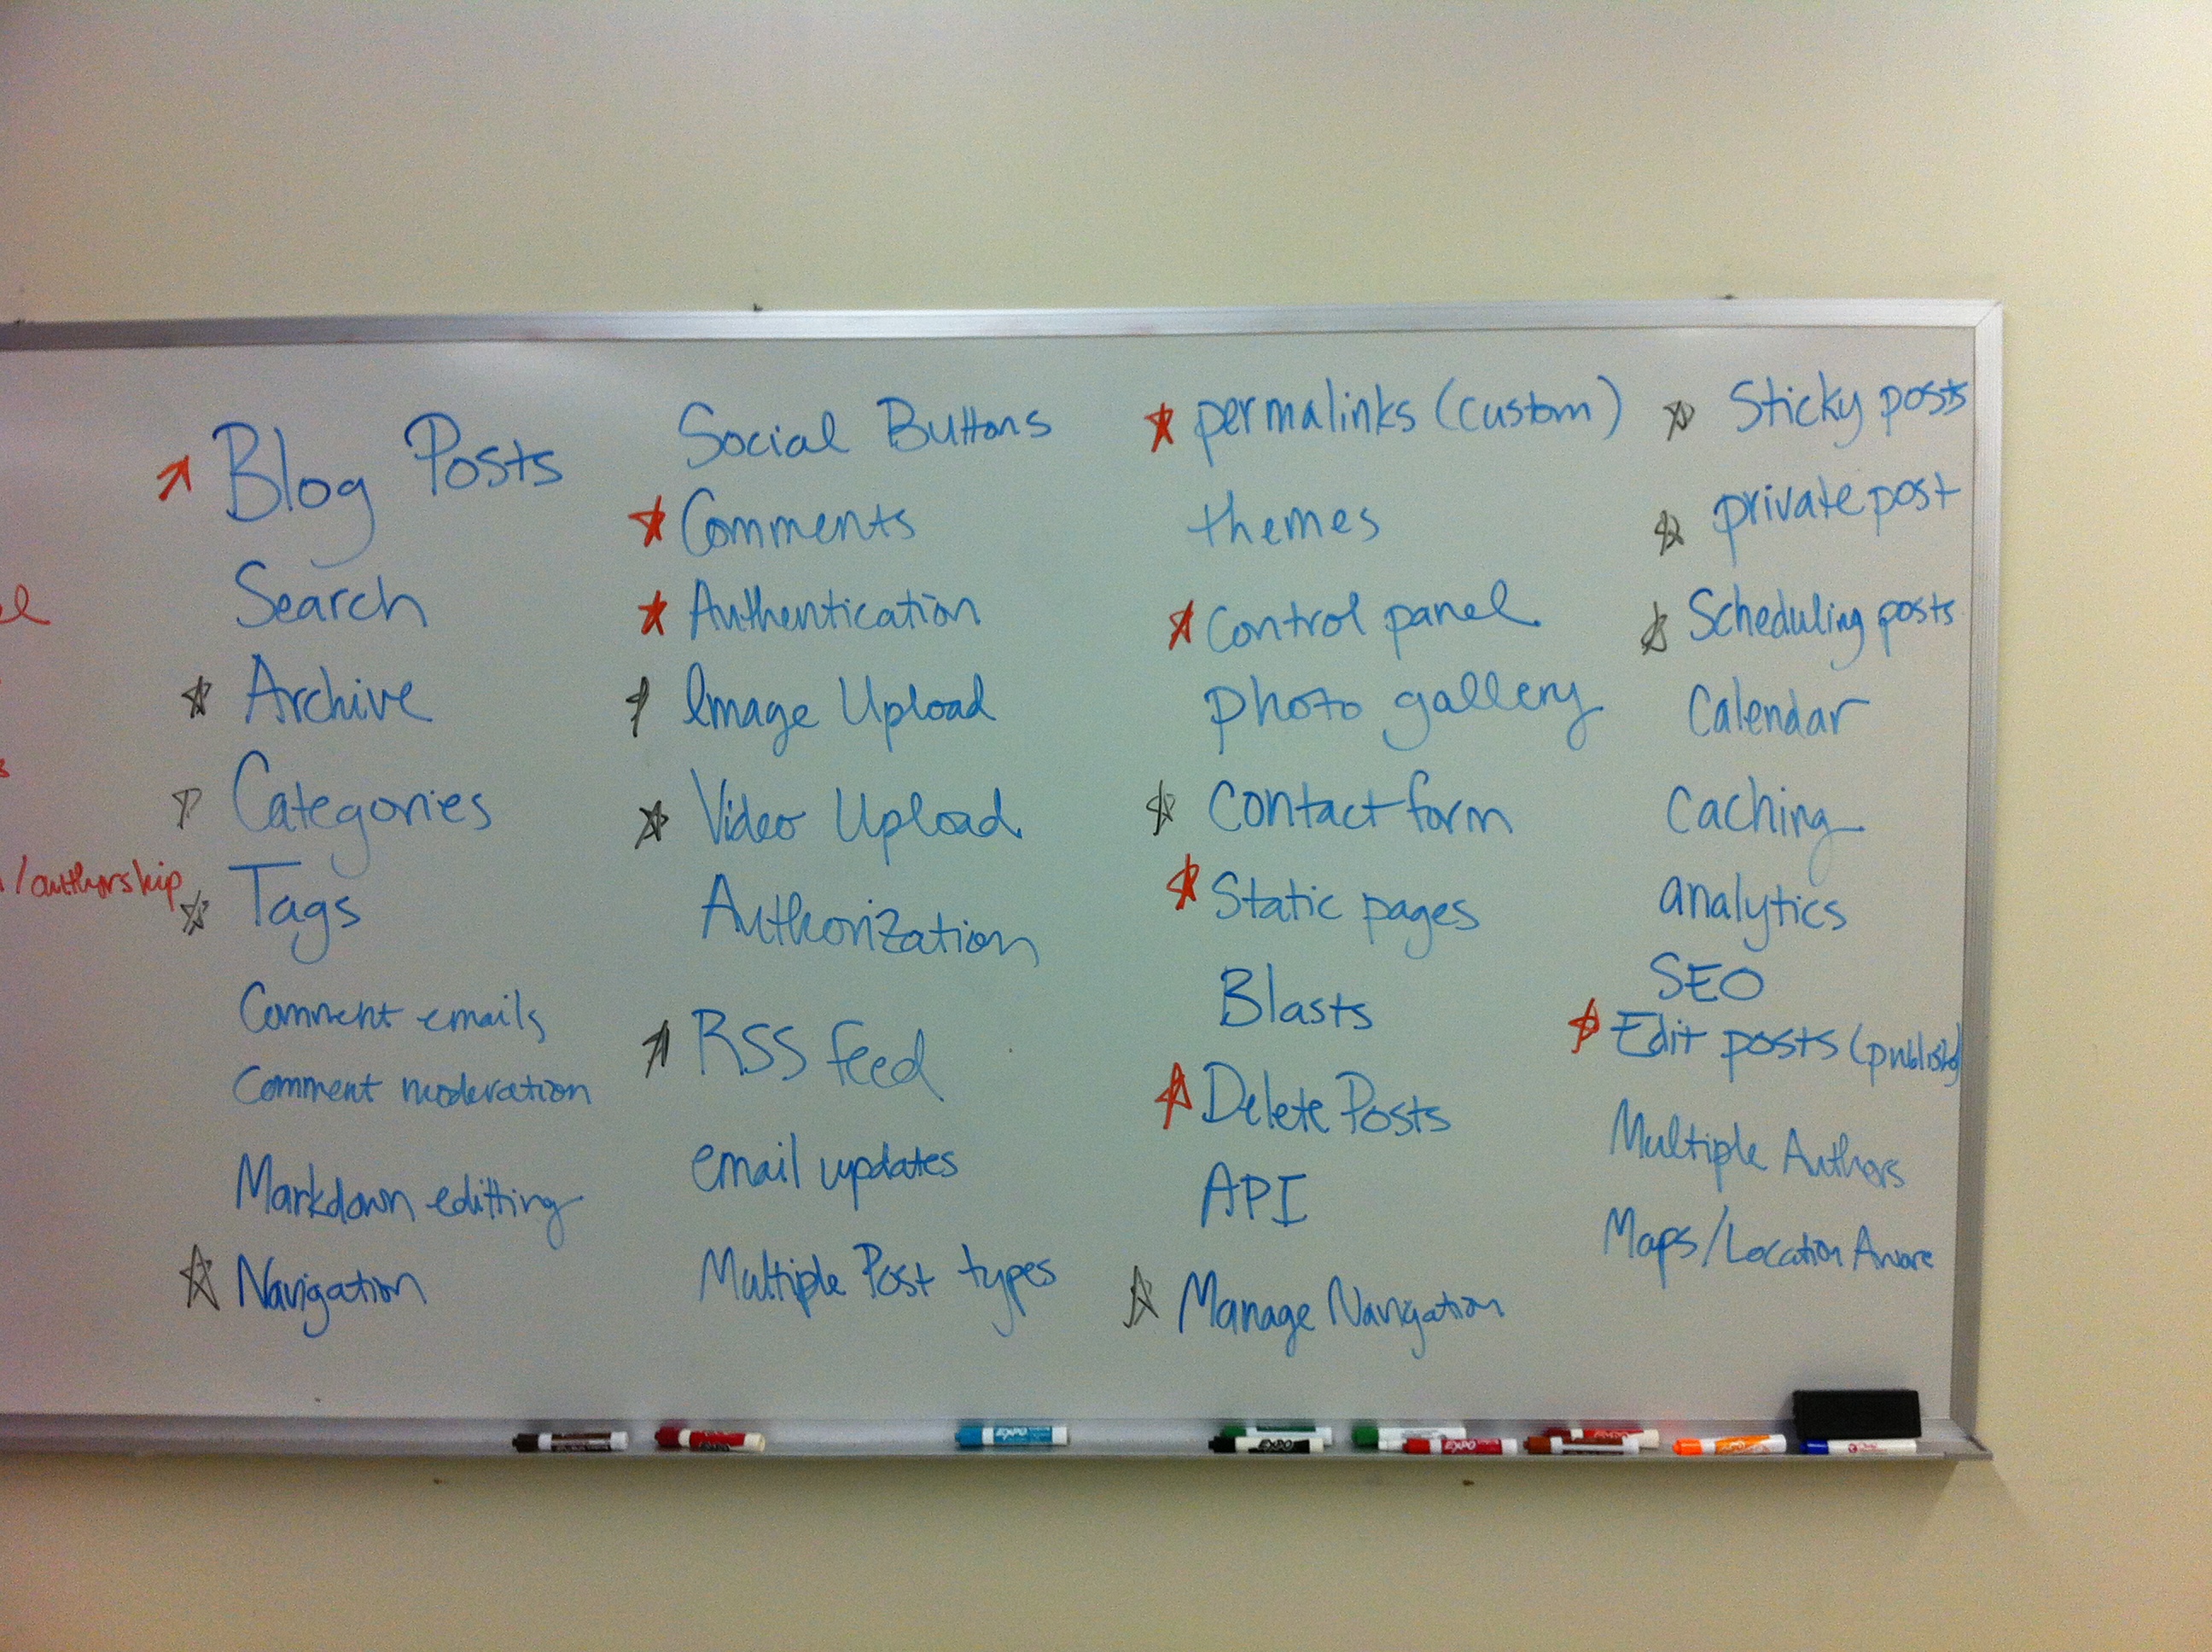 /authorship
Blog Posts
Search
Archive
Categories
Tags
Comment emails
Comment moderation
Markdown editting
Navigation
Social Buttons
Comments
Authentication
Image Upload
Video Upload
Authorization
RSS feed
email updates
Multiple Post types
permalinks (custom)
themes
Control panel
photo gallery
Contact form
Static pages
Blasts
Delete Posts
API
Manage Navigation
Sticky posts
private post
Scheduling posts
Calendar
Caching
analytics
SEO
Edit posts
Multiple Authors
Maps/Location Aware